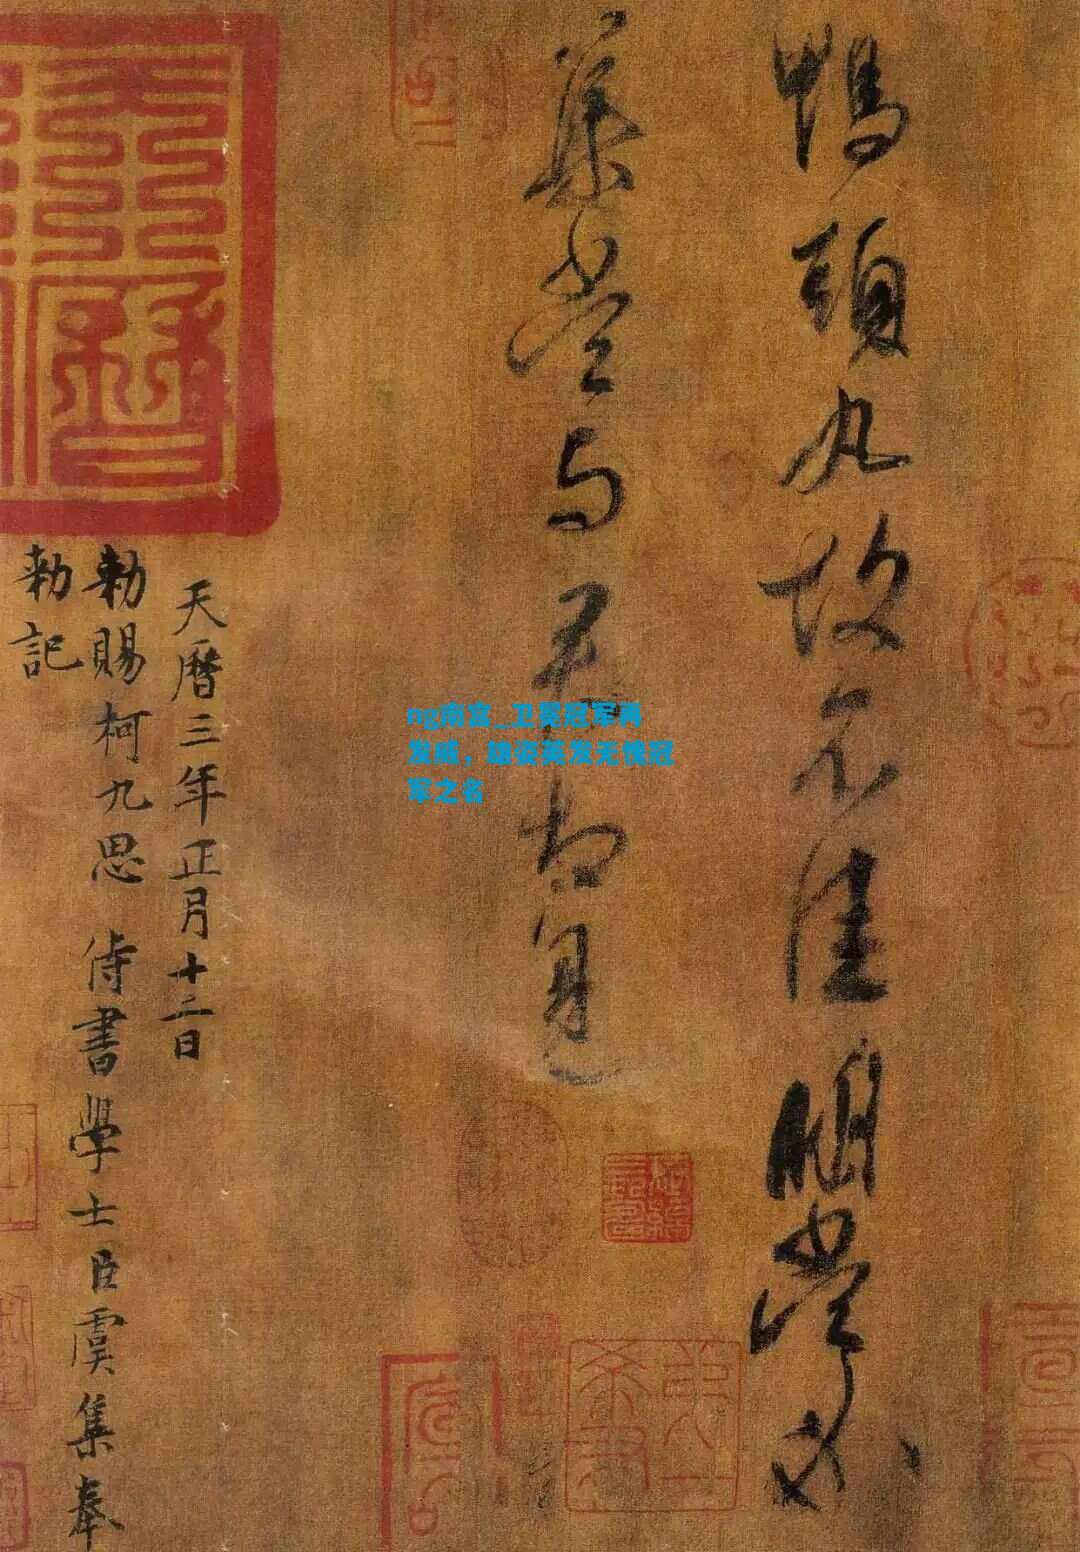 鴨頭丸故不佳明當必
集當與君相見
天曆三年正月十二日
勑賜柯九思侍書學士臣虞集奉
勑記
天曆
ng南宫_卫冕冠军再
发威，雄姿英发无愧冠
军之名